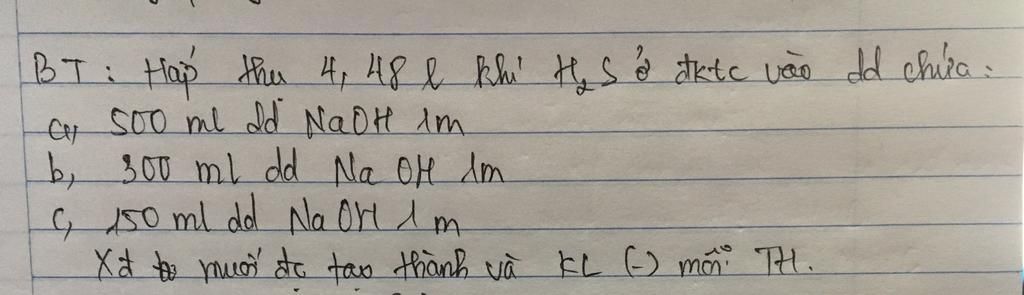 BT: Hấp thu 4,48 l khí H₂S ở đktc vào dd chứa:
a, 500 ml dd NaOH 1m
b, 300 ml dd NaOH 1m
c, 150 ml dd NaOH 1m
Xđ muối đc tạo thành và KL (-) mỗi TH.